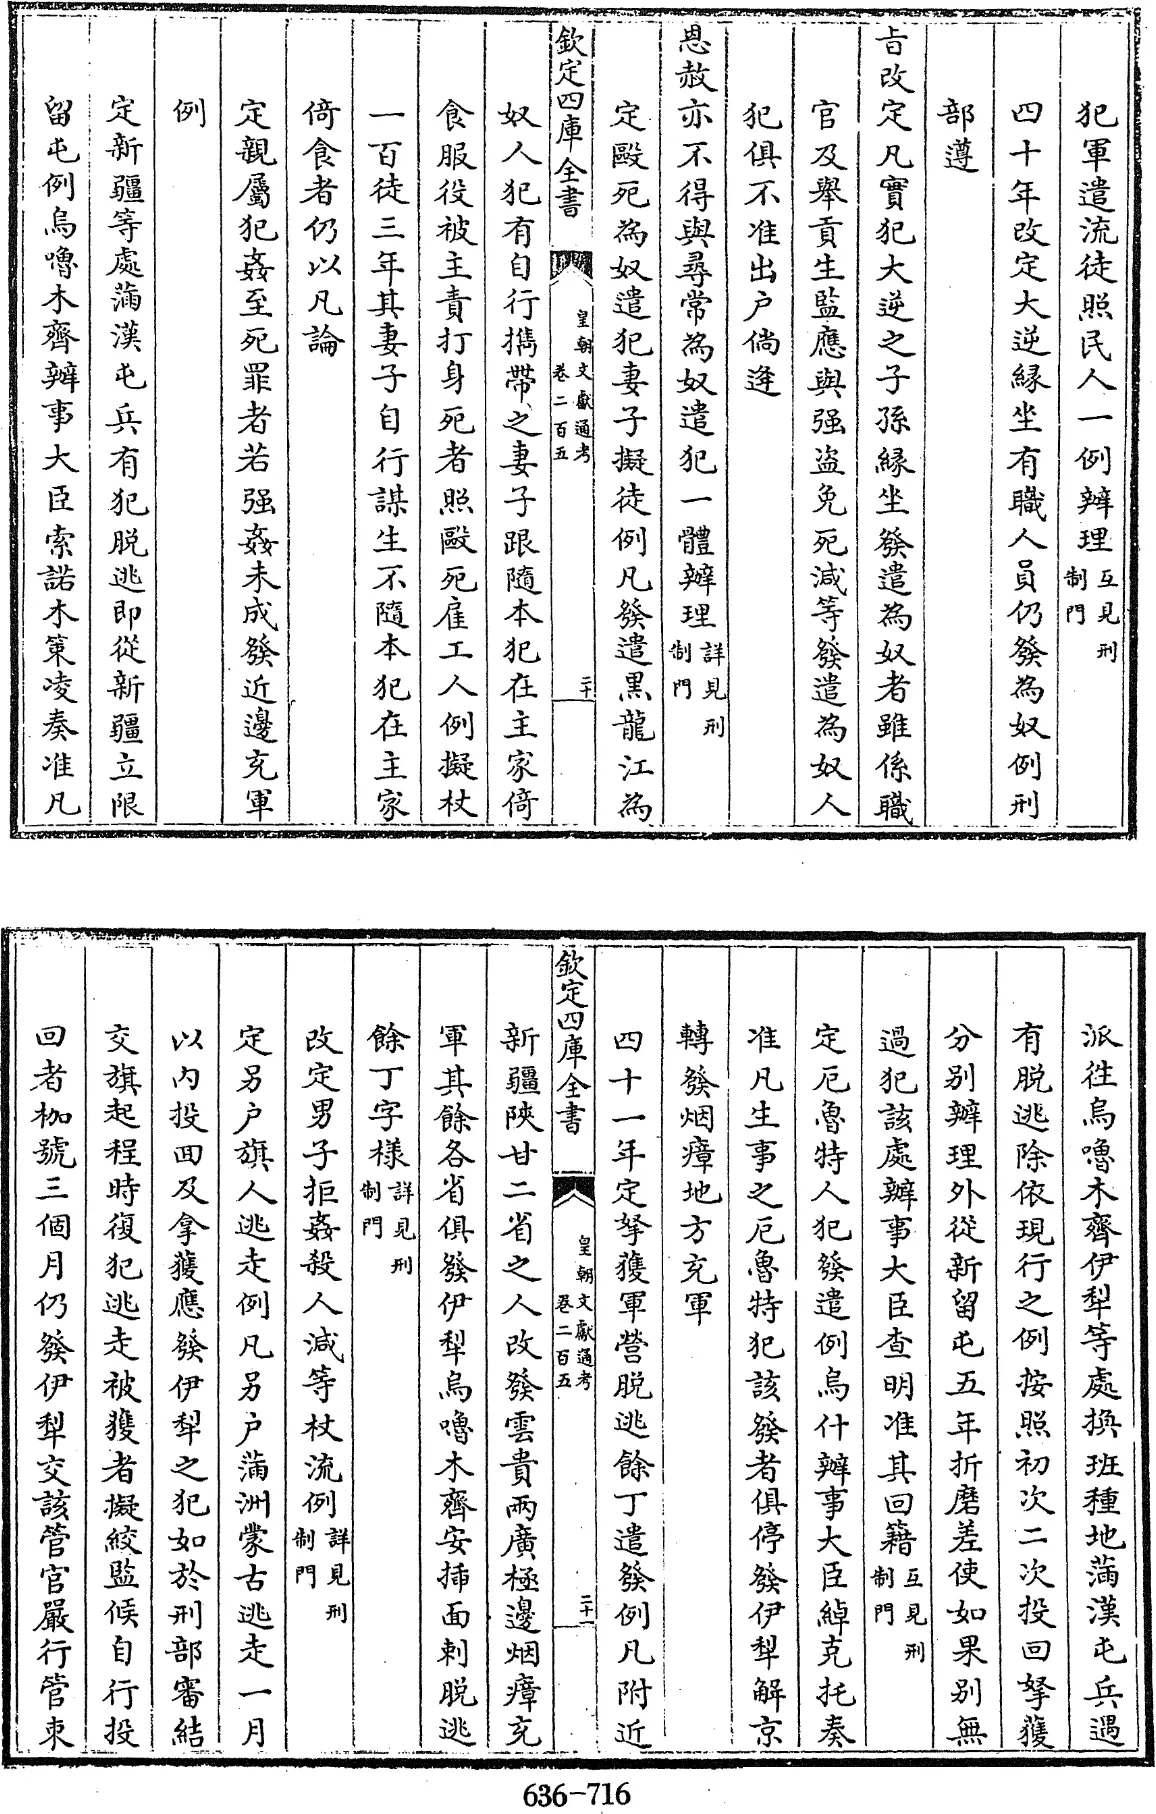 犯軍遣流徒照民人一例辦理互見刑制門
四十年改定大逆緣坐有職人員仍發為奴例刑
部遵
旨改定凡實犯大逆之子孫緣坐發遣為奴者雖係職
官及舉貢生監應與强盜免死減等發遣為奴人
犯俱不准出户倘逢
恩赦亦不得與尋常為奴遣犯一體辦理詳見刑制門
定毆死為奴遣犯妻子擬徒例凡發遣黑龍江為
欽定四庫全書
皇朝文獻通考
卷二百五
二十
奴人犯有自行携帶之妻子跟隨本犯在主家倚
食服役被主責打身死者照毆死雇工人例擬杖
一百徒三年其妻子自行謀生不隨本犯在主家
倚食者仍以凡論
定親屬犯姦至死罪者若强姦未成發近邊充軍
例
定新疆等處滿漢屯兵有犯脱逃即從新疆立限
留屯例烏嚕木齊辦事大臣索諾木策凌奏准凡
派往烏嚕木齊伊犁等處換班種地滿漢屯兵遇
有脱逃除依現行之例按照初次二次投回拏獲
分別辦理外從新留屯五年折磨差使如果別無
過犯該處辦事大臣查明准其回籍互見刑制門
定厄魯特人犯發遣例烏什辦事大臣綽克托奏
准凡生事之厄魯特犯該發者俱停發伊犁解京
轉發烟瘴地方充軍
四十一年定拏獲軍營脱逃餘丁遣發例凡附近
欽定四庫全書
皇朝文獻通考
卷二百五
二十一
新疆陝甘二省之人改發雲貴兩廣極邊烟瘴充
軍其餘各省俱發伊犁烏嚕木齊安插面刺脱逃
餘丁字樣詳見刑制門
改定男子拒姦殺人減等杖流例詳見刑制門
定另户旗人逃走例凡另户滿洲蒙古逃走一月
以内投回及拿獲應發伊犁之犯如於刑部審結
交旗起程時復犯逃走被獲者擬絞監候自行投
回者枷號三個月仍發伊犁交該管官嚴行管束
636-716